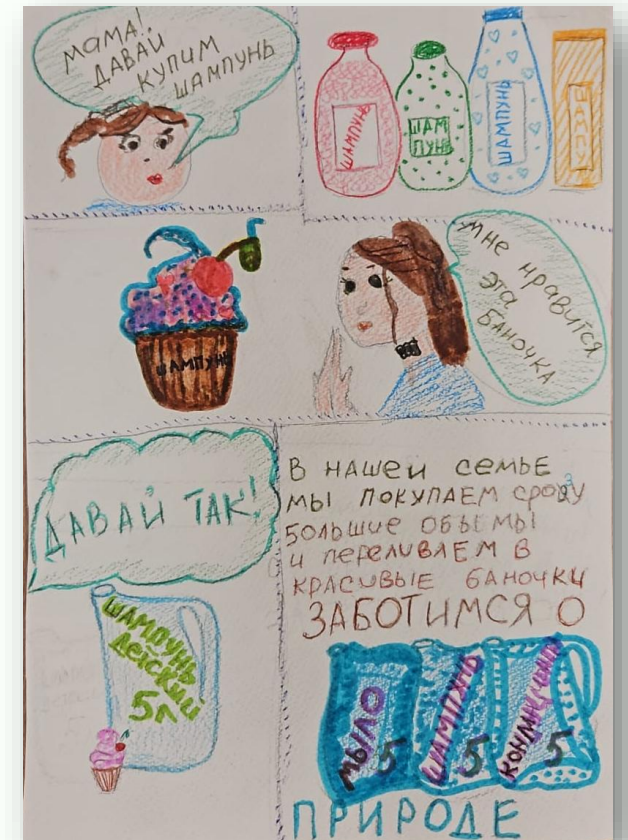 мама!
ДАВАЙ
КУПИМ
ШАМПУНЬ
ШАМПУНЬ
ШАМ
ПУНЬ
ШАМПУНЬ
ШАМПУ
ШАМПУНЬ
мне нравится
эта
баночка
ДАВАЙ ТАК!
ШАМПУНЬ
детский
5л
В НАШЕЙ СЕМЬЕ
МЫ ПОКУПАЕМ сразу
БОЛЬШИЕ ОБЪЕМЫ
и ПЕРЕЛИВАЕМ В
КРАСИВЫЕ баночки
ЗАБОТИМСЯ О
МЫЛО 5
ШАМПУНЬ 5
5
ПРИРОДЕ